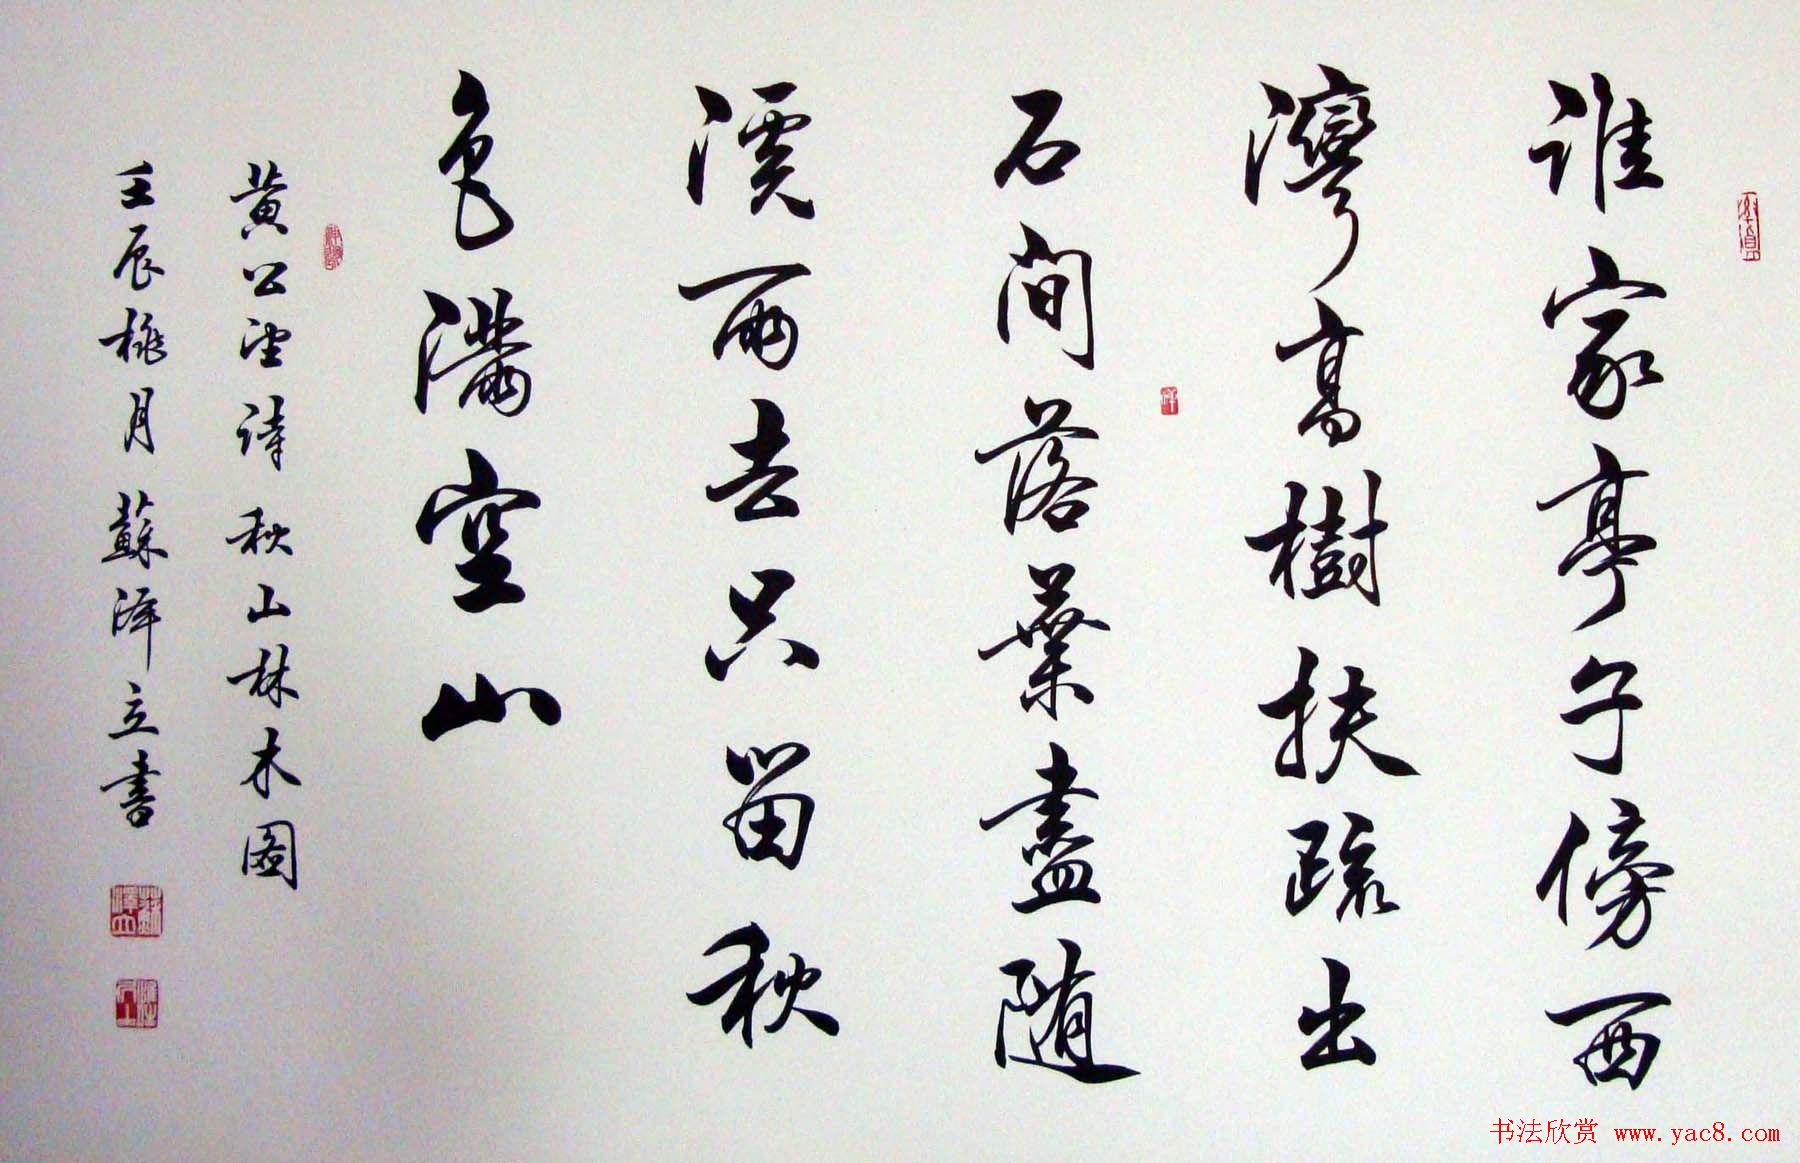 谁家亭子傍西
灣高樹扶疏出
石间落葉盡随
溪雨去只留秋
色满空山
黄公望诗秋山林木图
壬辰桃月蘇泽立書
书法欣赏 www.yac8.com